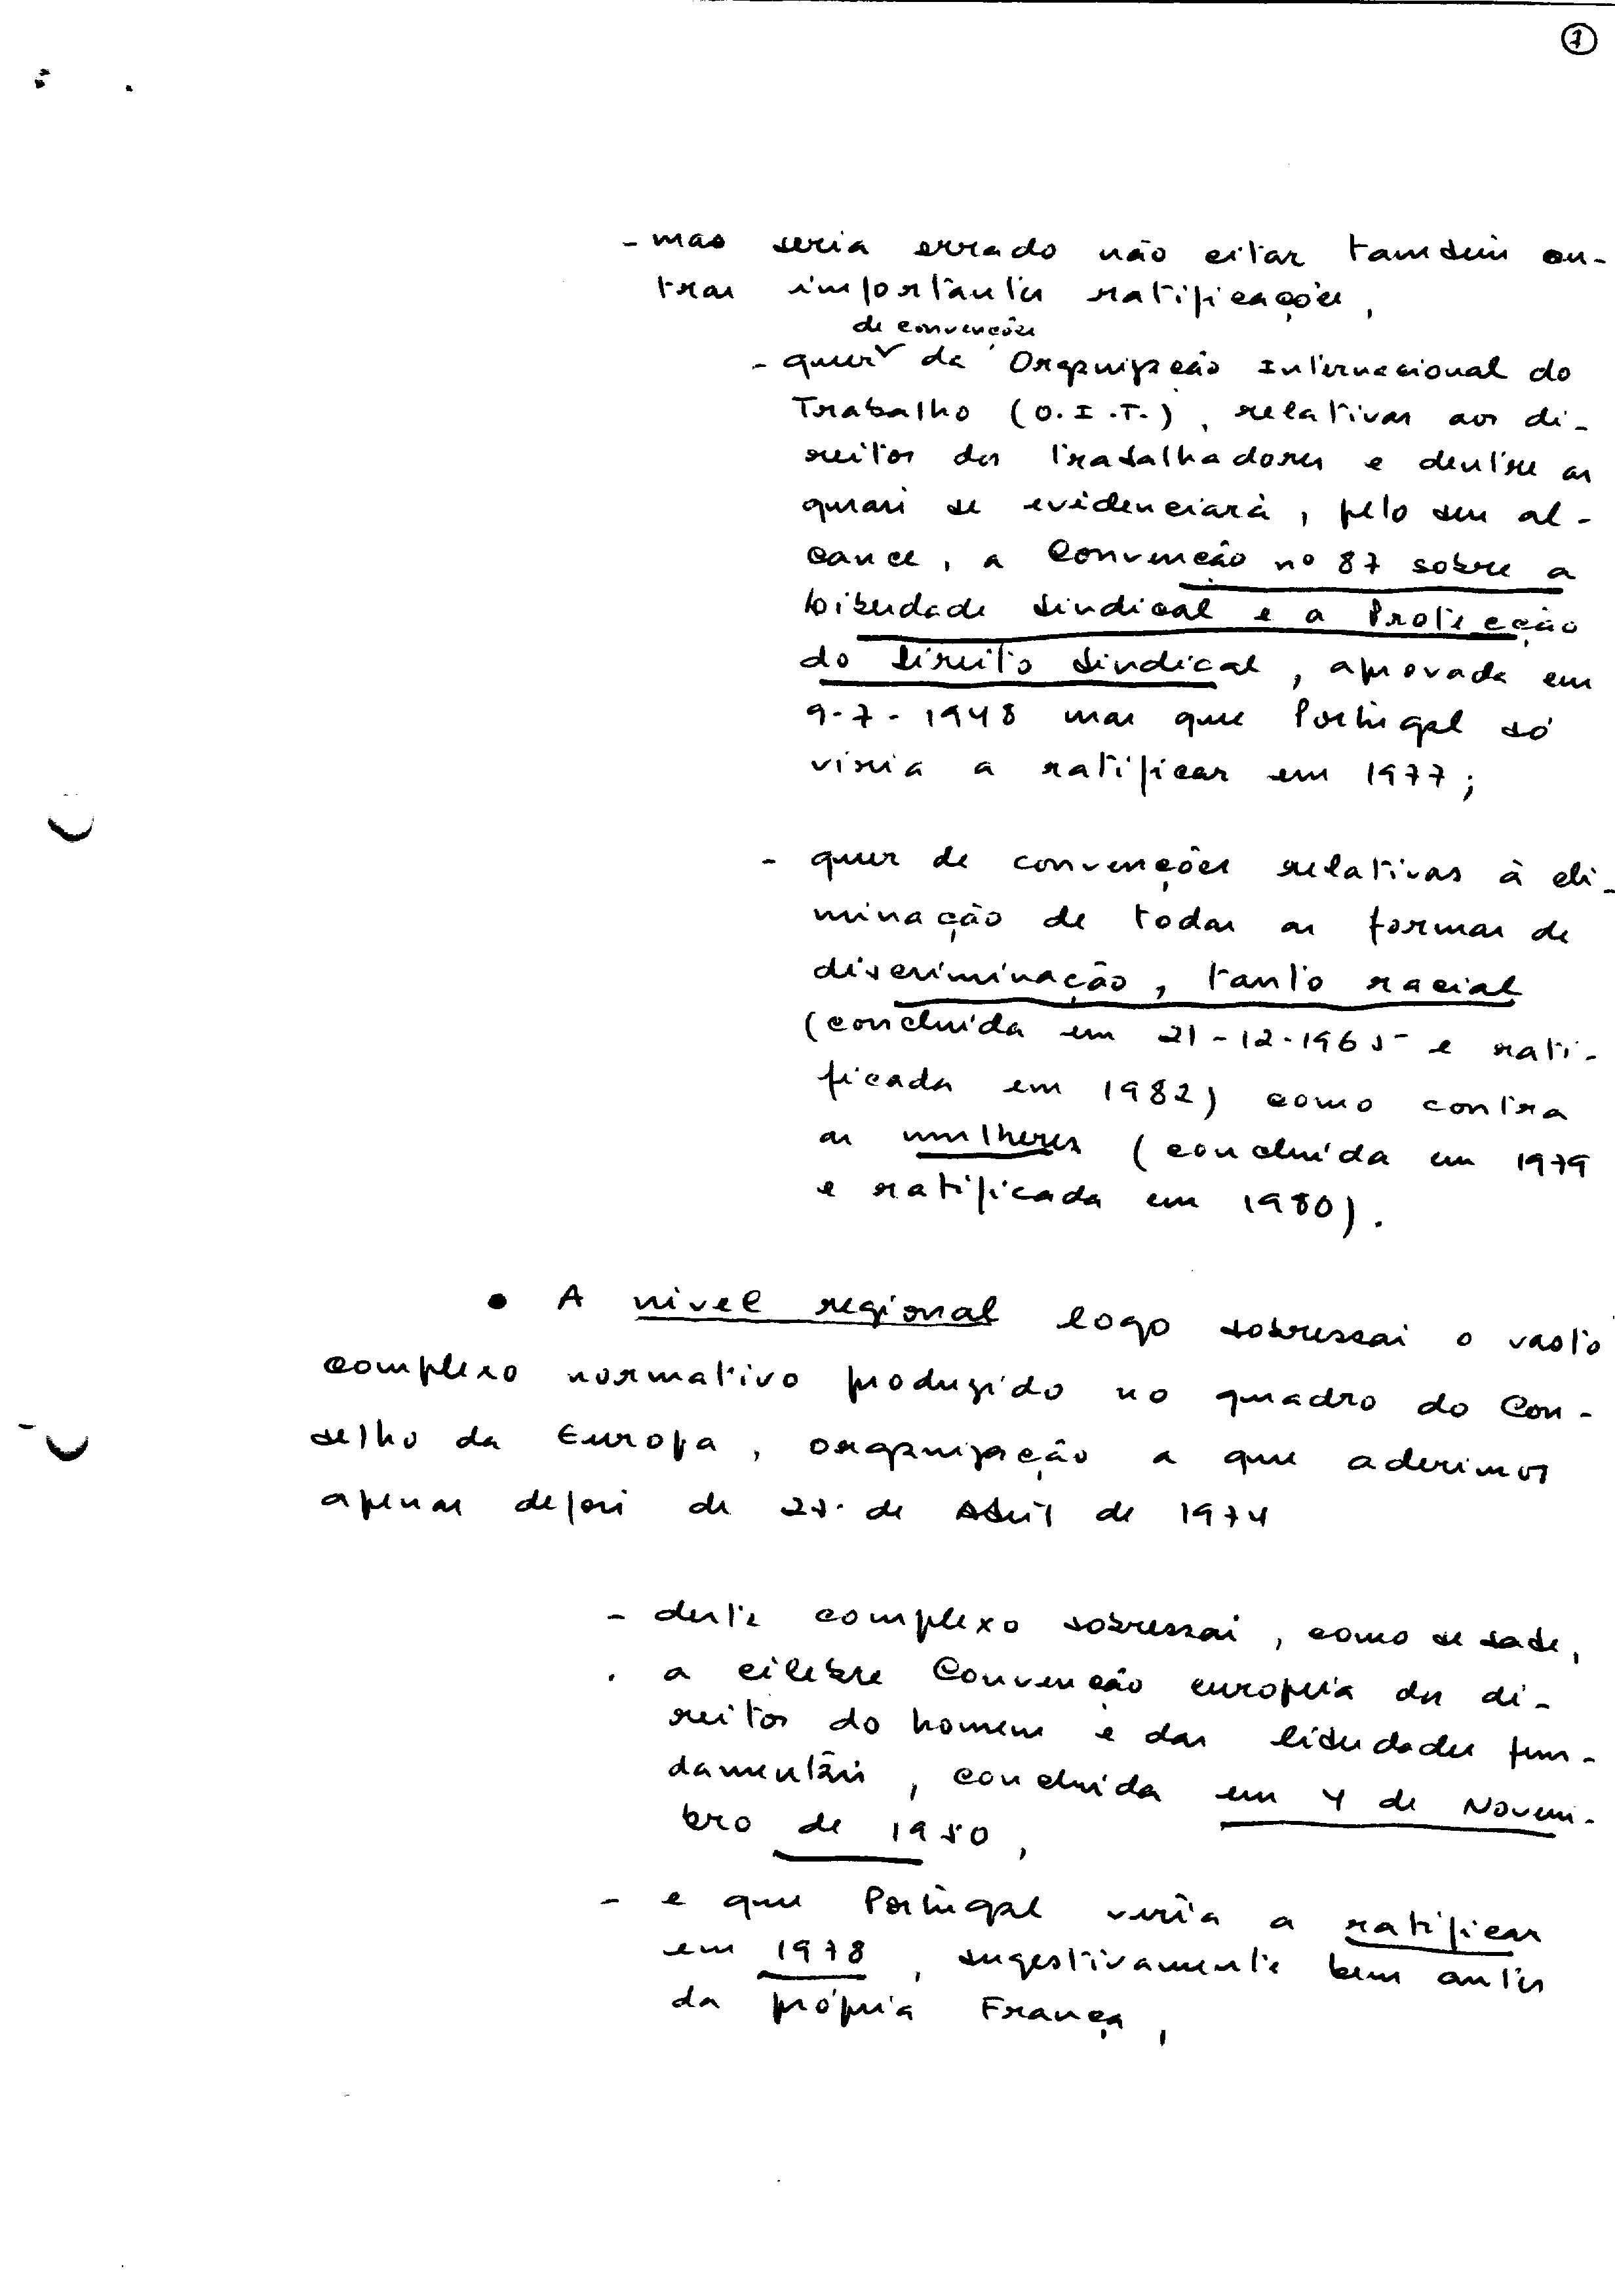 7
- mas seria errado não citar também ou-
tras importantes ratificações,
de convenções
- quer da Organização Internacional do
Trabalho (O.I.T.), relativas aos di-
reitos dos trabalhadores e dentre as
quais se evidenciará, pelo seu al-
cance, a Convenção nº 87 sobre a
Liberdade Sindical e a Protecção
do Direito Sindical, aprovada em
9-7-1948 mas que Portugal só
viria a ratificar em 1977;
- quer de convenções relativas à eli-
minação de todas as formas de
discriminação, tanto racial
(concluída em 21-12-1965 e rati-
ficada em 1982) como contra
as mulheres (concluída em 1979
e ratificada em 1980).
• A nível regional logo sobressai o vasto
complexo normativo produzido no quadro do Con-
selho da Europa, organização a que aderimos
apenas depois de 25 de Abril de 1974
- deste complexo sobressai, como se sabe,
a célebre Convenção europeia dos di-
reitos do homem e das liberdades fun-
damentais, concluída em 4 de Novem-
bro de 1950,
- e que Portugal viria a ratificar
em 1978, sugestivamente bem antes
da própria França,